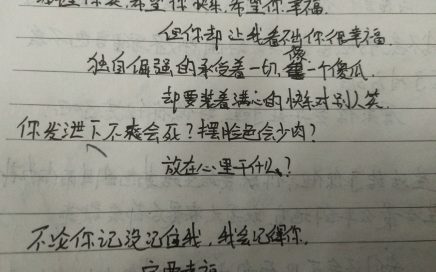 希望你快乐,希望你幸福.
但你却让我看不出你很幸福.
独自倔强的承受着一切,像一个傻瓜.
却要装着满心的快乐对别人笑.
你发泄下不爽会死?摆脸色会少肉?
放在心里干什么?
不论你记没记住我,我会记得你.
一定要幸福